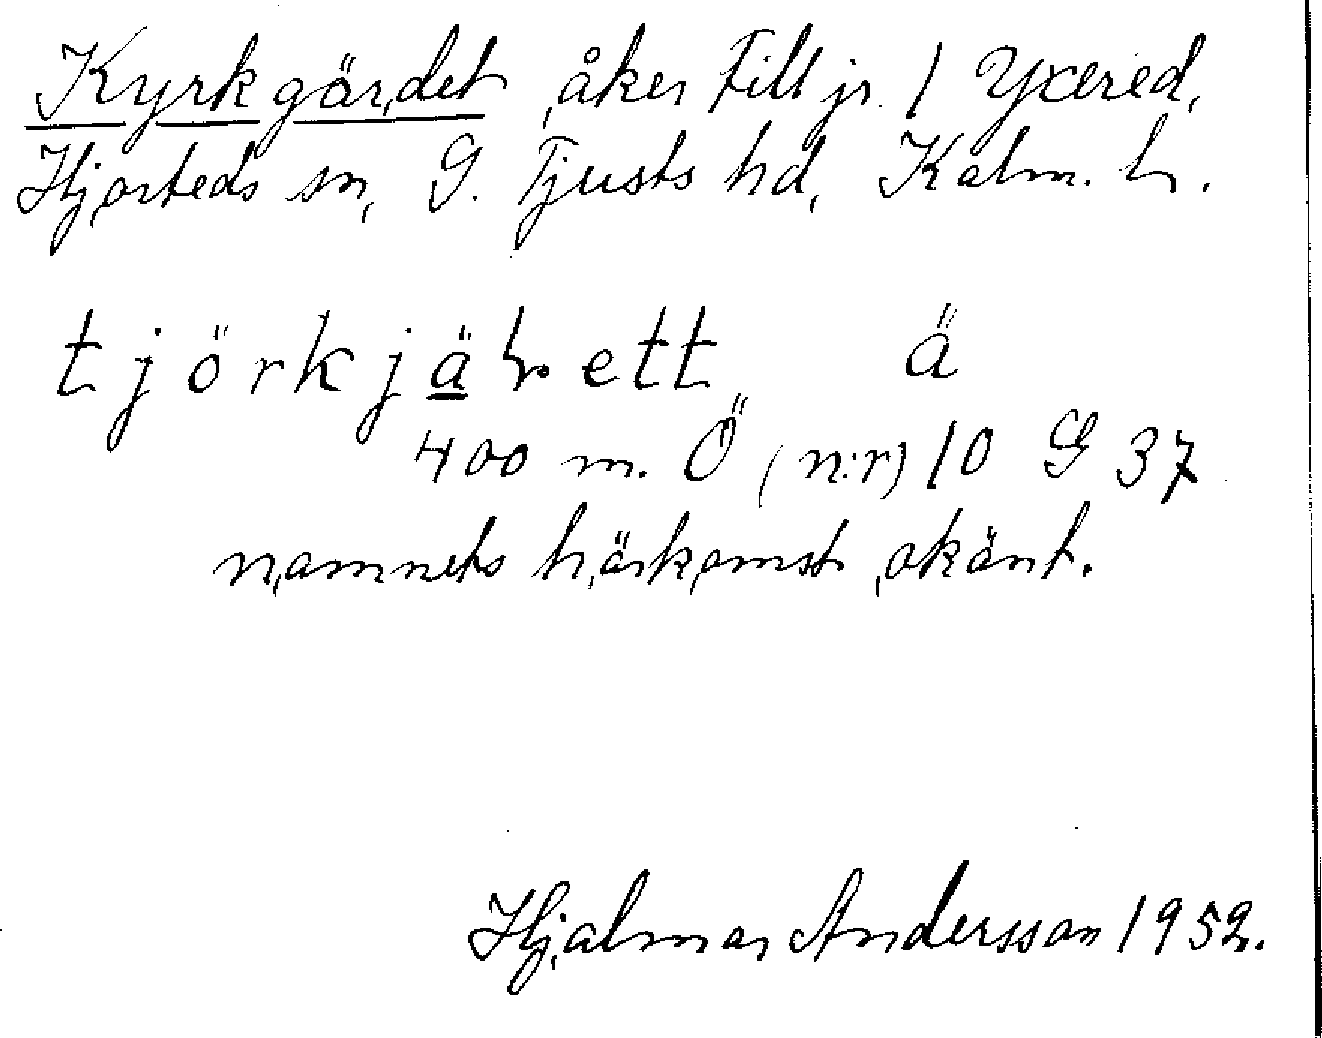 Kyrkgärdet åker till jr. 1 Yxered,
Hjorteds sn, S. Tjusts hd, Kalm. l.
tjörkjäḷett ä
400 m. Ö (n:r) 10 G 37
namnets härkomst okänt.
Hjalmar Andersson 1952.